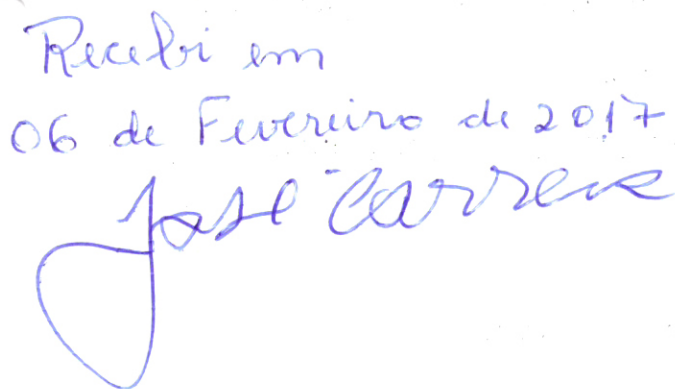 Recebi em
06 de Fevereiro de 2017
José Carrera